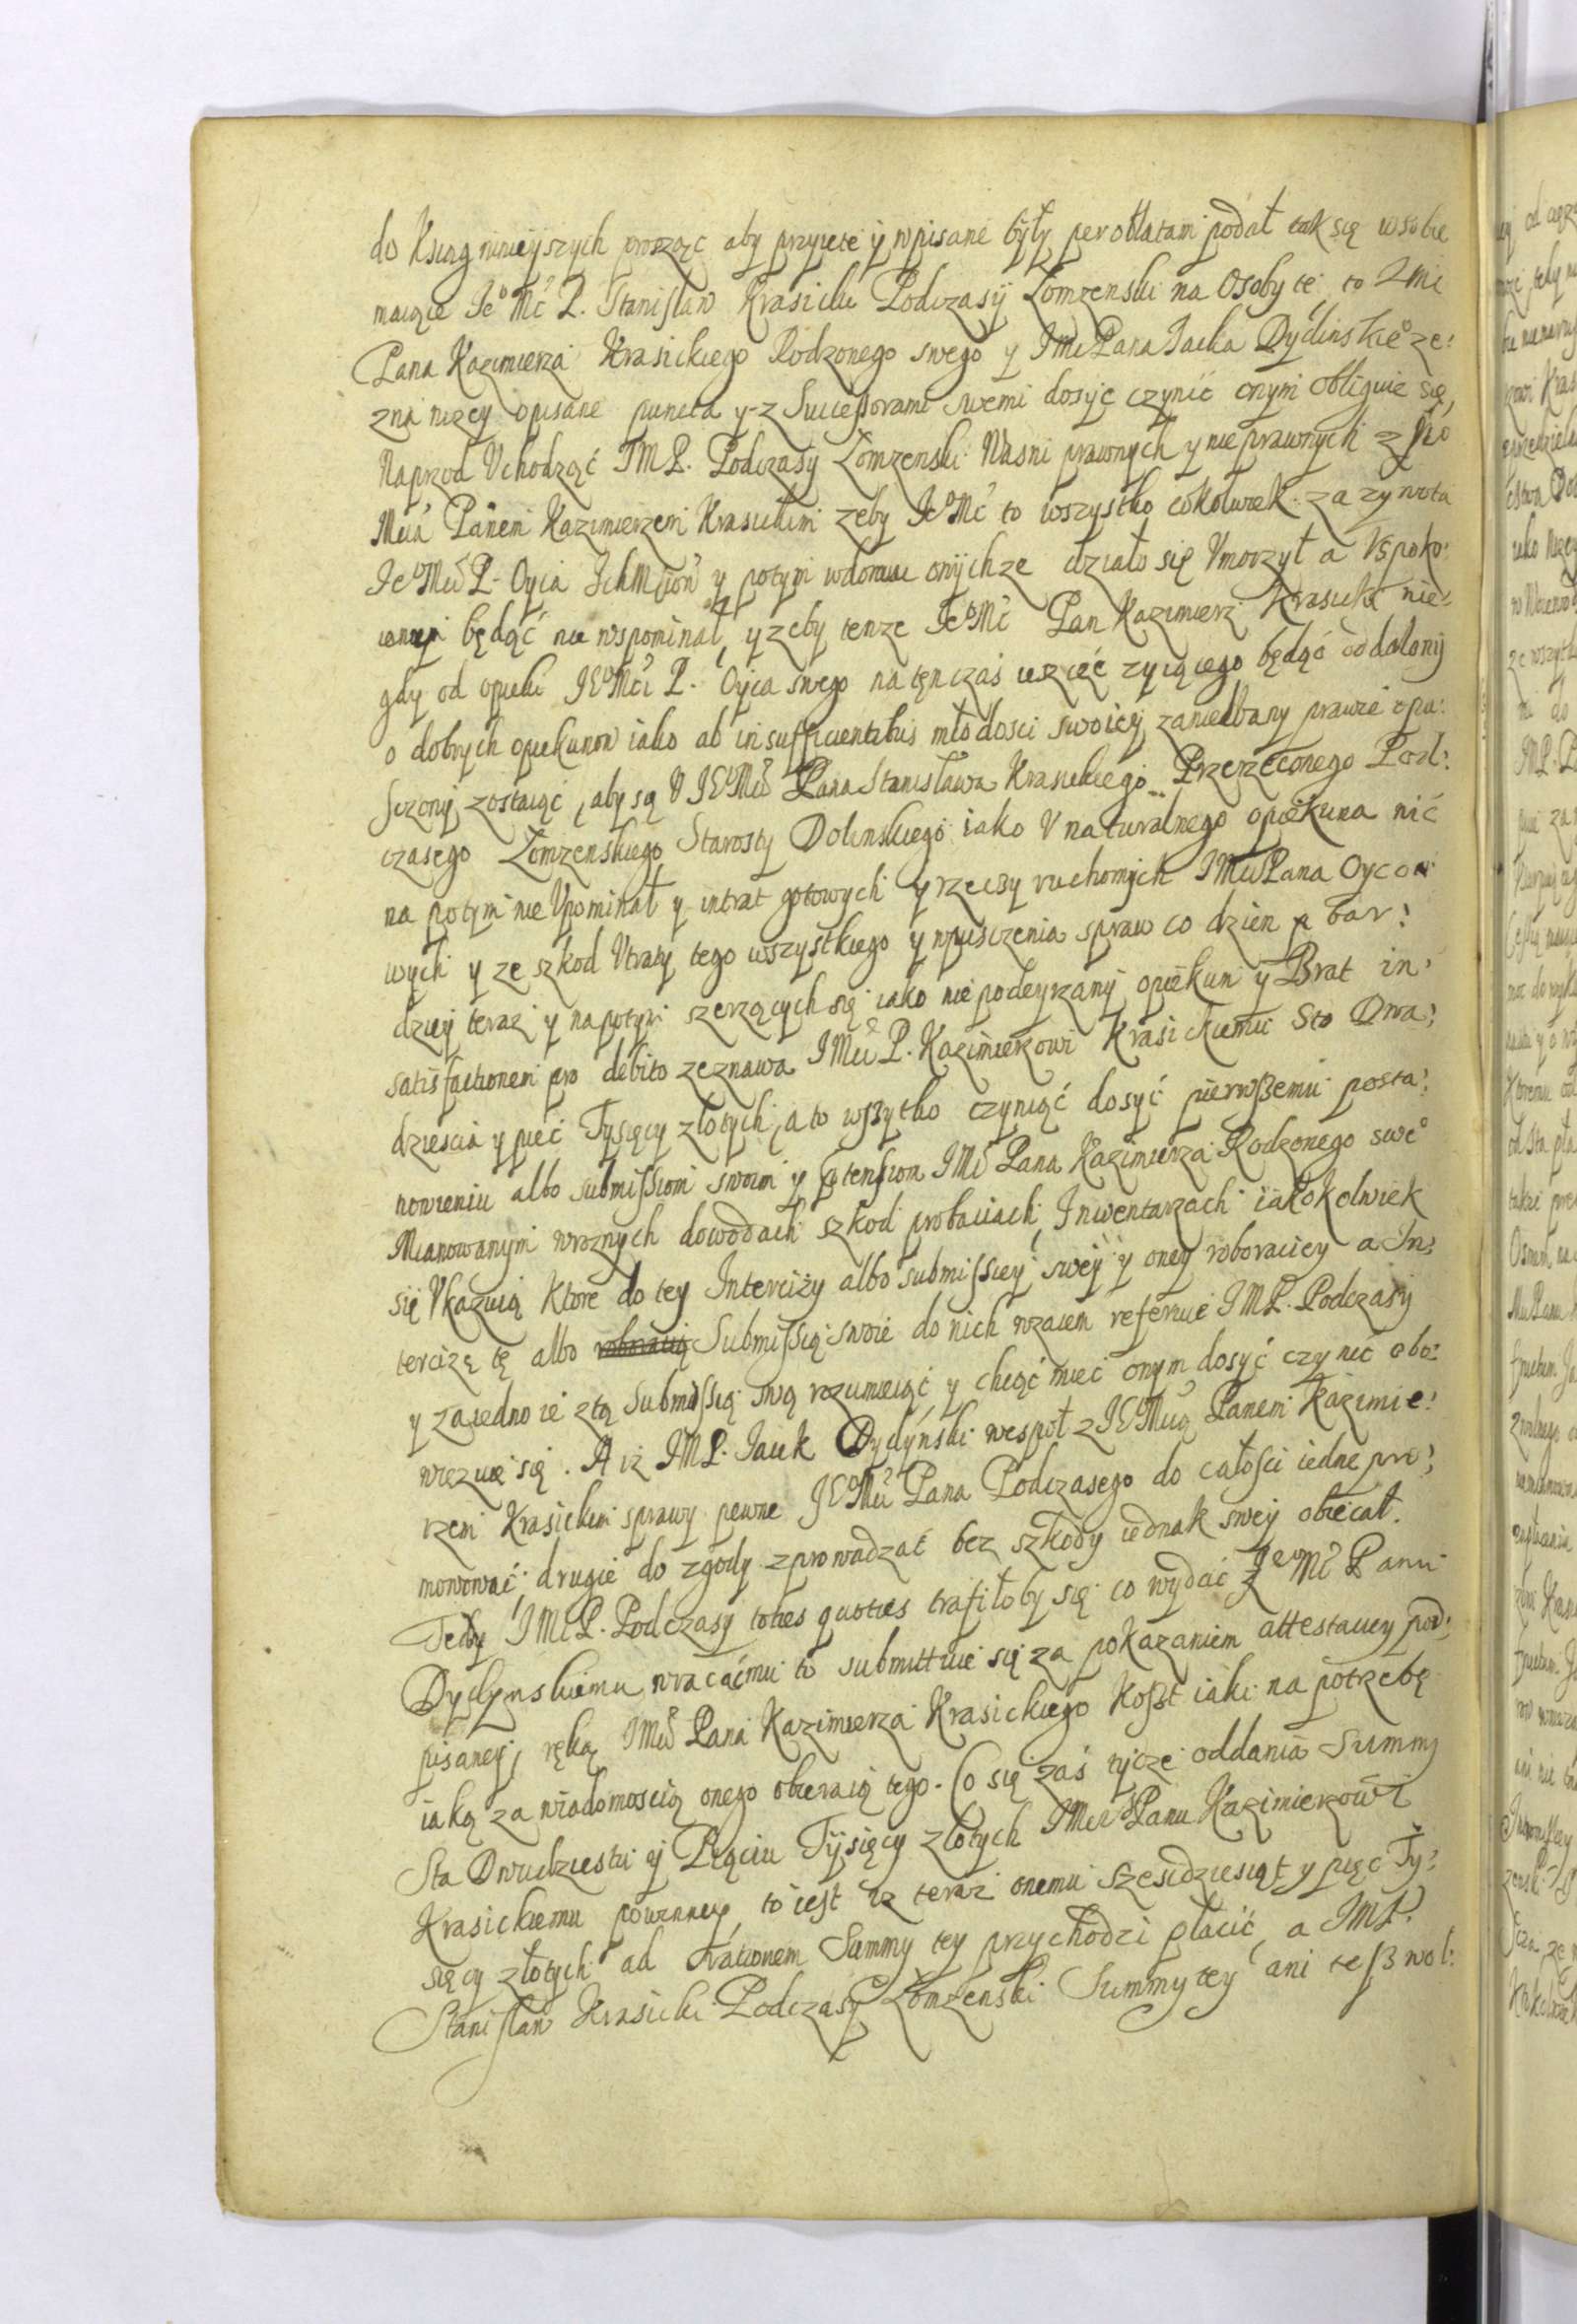 do Ksiąg ninieyszych prosząc aby przyięte y wpisane były per oblatam podał tak się w sobie
maiące Je° Mć P. Stanisław Krasicki Podczasÿ Łomzenski na Osoby te to IMć
Pana Kazimierza Krasickiego Rodzonego swego y IMci Pana Jacka Dydinskie° ze:
zna nizey opisane puncta y z Successorami swemi dosyc czynić onym obliguie się,
Naprzod Uchodząć IM P. Podczasy Łomzenski Wasni prawnych y nie prawnych z Je°
Mcią Panem Kazimierzem Krasickim zeby Je° Mć to wszystko cokolwiek za zywota
Je° Mci P. Oyca Ichmciow y potym wdomu onÿchze działo się Umorzył a Uspoko:
ionym będąć nie wspominał, y zeby tenze Je° Mć Pan Kazimierz Krasicki nie:
gdy od opieki JE° Mci P. Oyca swego na tęnczas ieszcze zyiącego będąć oddalony
o dobrych opiekunow iako ab insufficientibus młodosci swoiey zaniedbany prawie opu:
sczony zostaiąc, aby są U JE° Mci Pana Stanisława Krasickiego Przerzeconego Pod:
czasego Łomzenskiego Starosty Dolinskiego iako U naturalnego opiekuna nić
na potym nie Upominał y intrat gotowych y rzeczy ruchomych IMci Pana Oycow
wych y ze szkod Utraty tego wszystkiego y wpusczenia spraw co dzien a bar:
dziey teraz y napotym szerzących się iako nie podeyrzany opiekun y Brat in
satisfactionem pro debito zeznawa IMci P. Kazimierzowi Krasickiemu Sto Dwa:
dziescia y pieć Tysięcy złotych, a to wszytko czyniąć dosyć pierwszemu posta:
nowieniu albo submissiom swoim y IMci Pana Kazimierza Rodzonego swe°
Mianowanym wroznych dowodach szkod probaciach, Inwentarzach iakokolwiek
się Ukazuią Ktore do tey Intercizy albo submissiey swey y oney roboraciey a In:
tercizę tę albo Submissią swoie do nich wzaiem referuie IM P. Podczasÿ
y zaiedno ie ztą Submissią swą rozumieiąć y chcąć mieć onym dosyć czynić obo:
więzuie się. A iz IM P. Jacek Dydyński wespoł z JE° Mcią Panem Kazimie:
rzem Krasickim sprawy pewne JE° Mci Pana Podczasego do całosci iedne pro:
mowować, drugie do zgody zprowadzać bez szkody iednak swey obiecał.
Tedy IMć P. Podczasy toties quoties trafiłoby się co wydać Je° Mć Panu
Dydynskiemu wracaćmu to submittuie się za pokazaniem attestaciey pod:
pisaney, ręką IMci Pana Kazimierza Krasickiego koszt iaki na potrzebę
iaką za wiadomoscią onego obieraią tego. Co się zaś tycze oddania Summy
Sta Dwudziestu y Pięciu Tÿsięcy złotych IMci Panu Kazimierzowi
Krasickiemu powinney, to iest iz teraz onemu szescdziesiąt y pięc Ty:
sięcy złotych ad rationem Summy tey przychodzi płacić, a IM P.
Stanisław Krasicki Podczasy Łomzenski Summy tey ani tesz wol: